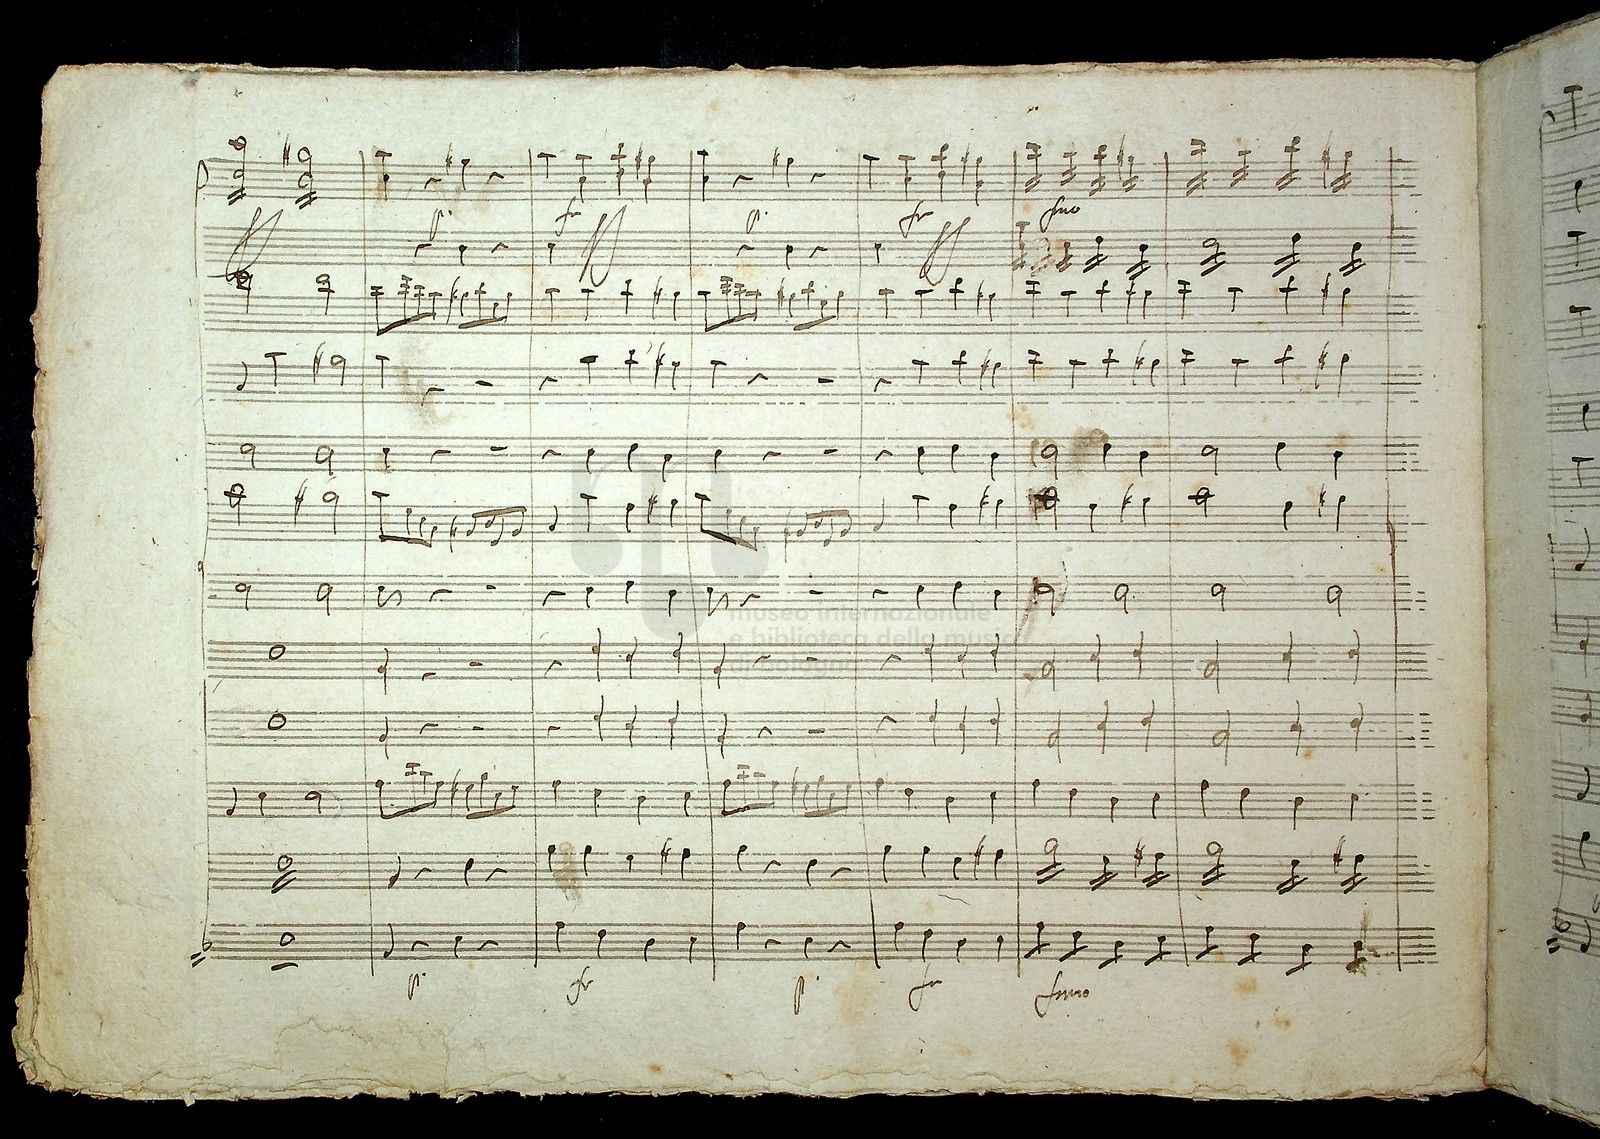 p. fr p. fr fmo
museo internazionale
e biblioteca della musica
di bologna
p. fr p. fr fmo